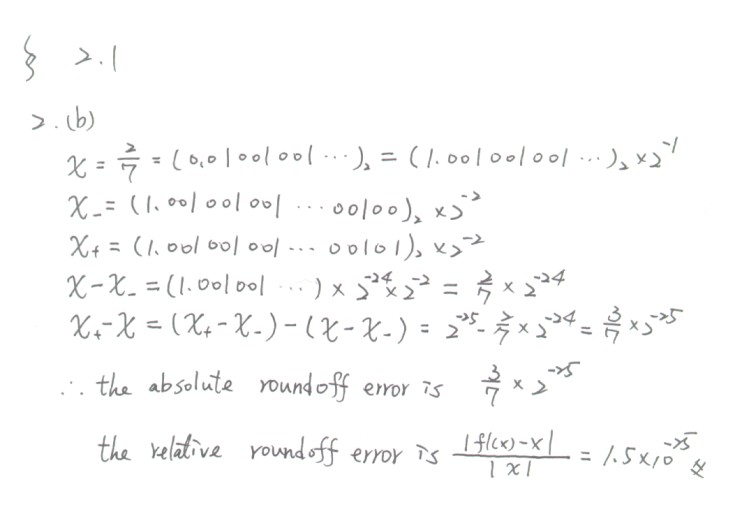 § 2.1
2.(b)
x = 2/7 = (0.01001001 ...)₂ = (1.001001001 ...)₂ × 2⁻¹
x₋ = (1.001001001 ... 00100)₂ × 2⁻²
x₊ = (1.001001001 ... 00101)₂ × 2⁻²
x-x₋ = (1.001001 ...) × 2⁻²⁴ × 2⁻² = 2/7 × 2⁻²⁴
x₊-x = (x₊-x₋)-(x-x₋) = 2⁻²⁵ - 2/7 × 2⁻²⁴ = 3/7 × 2⁻²⁵
∴ the absolute roundoff error is 3/7 × 2⁻²⁵
the relative roundoff error is |fl(x)-x| / |x| = 1.5×10⁻²⁵